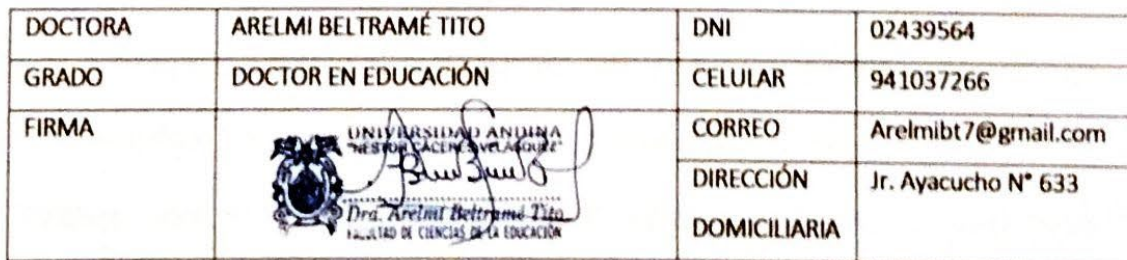 DOCTORA ARELMI BELTRAMÉ TITO DNI 02439564
GRADO DOCTOR EN EDUCACIÓN CELULAR 941037266
FIRMA
UNIVERSIDAD ANDINA
"NESTOR CÁCERES VELÁSQUEZ"
Dra. Arelmi Beltramé Tito
FACULTAD DE CIENCIAS DE LA EDUCACIÓN
CORREO Arelmibt7@gmail.com
DIRECCIÓN Jr. Ayacucho N° 633
DOMICILIARIA